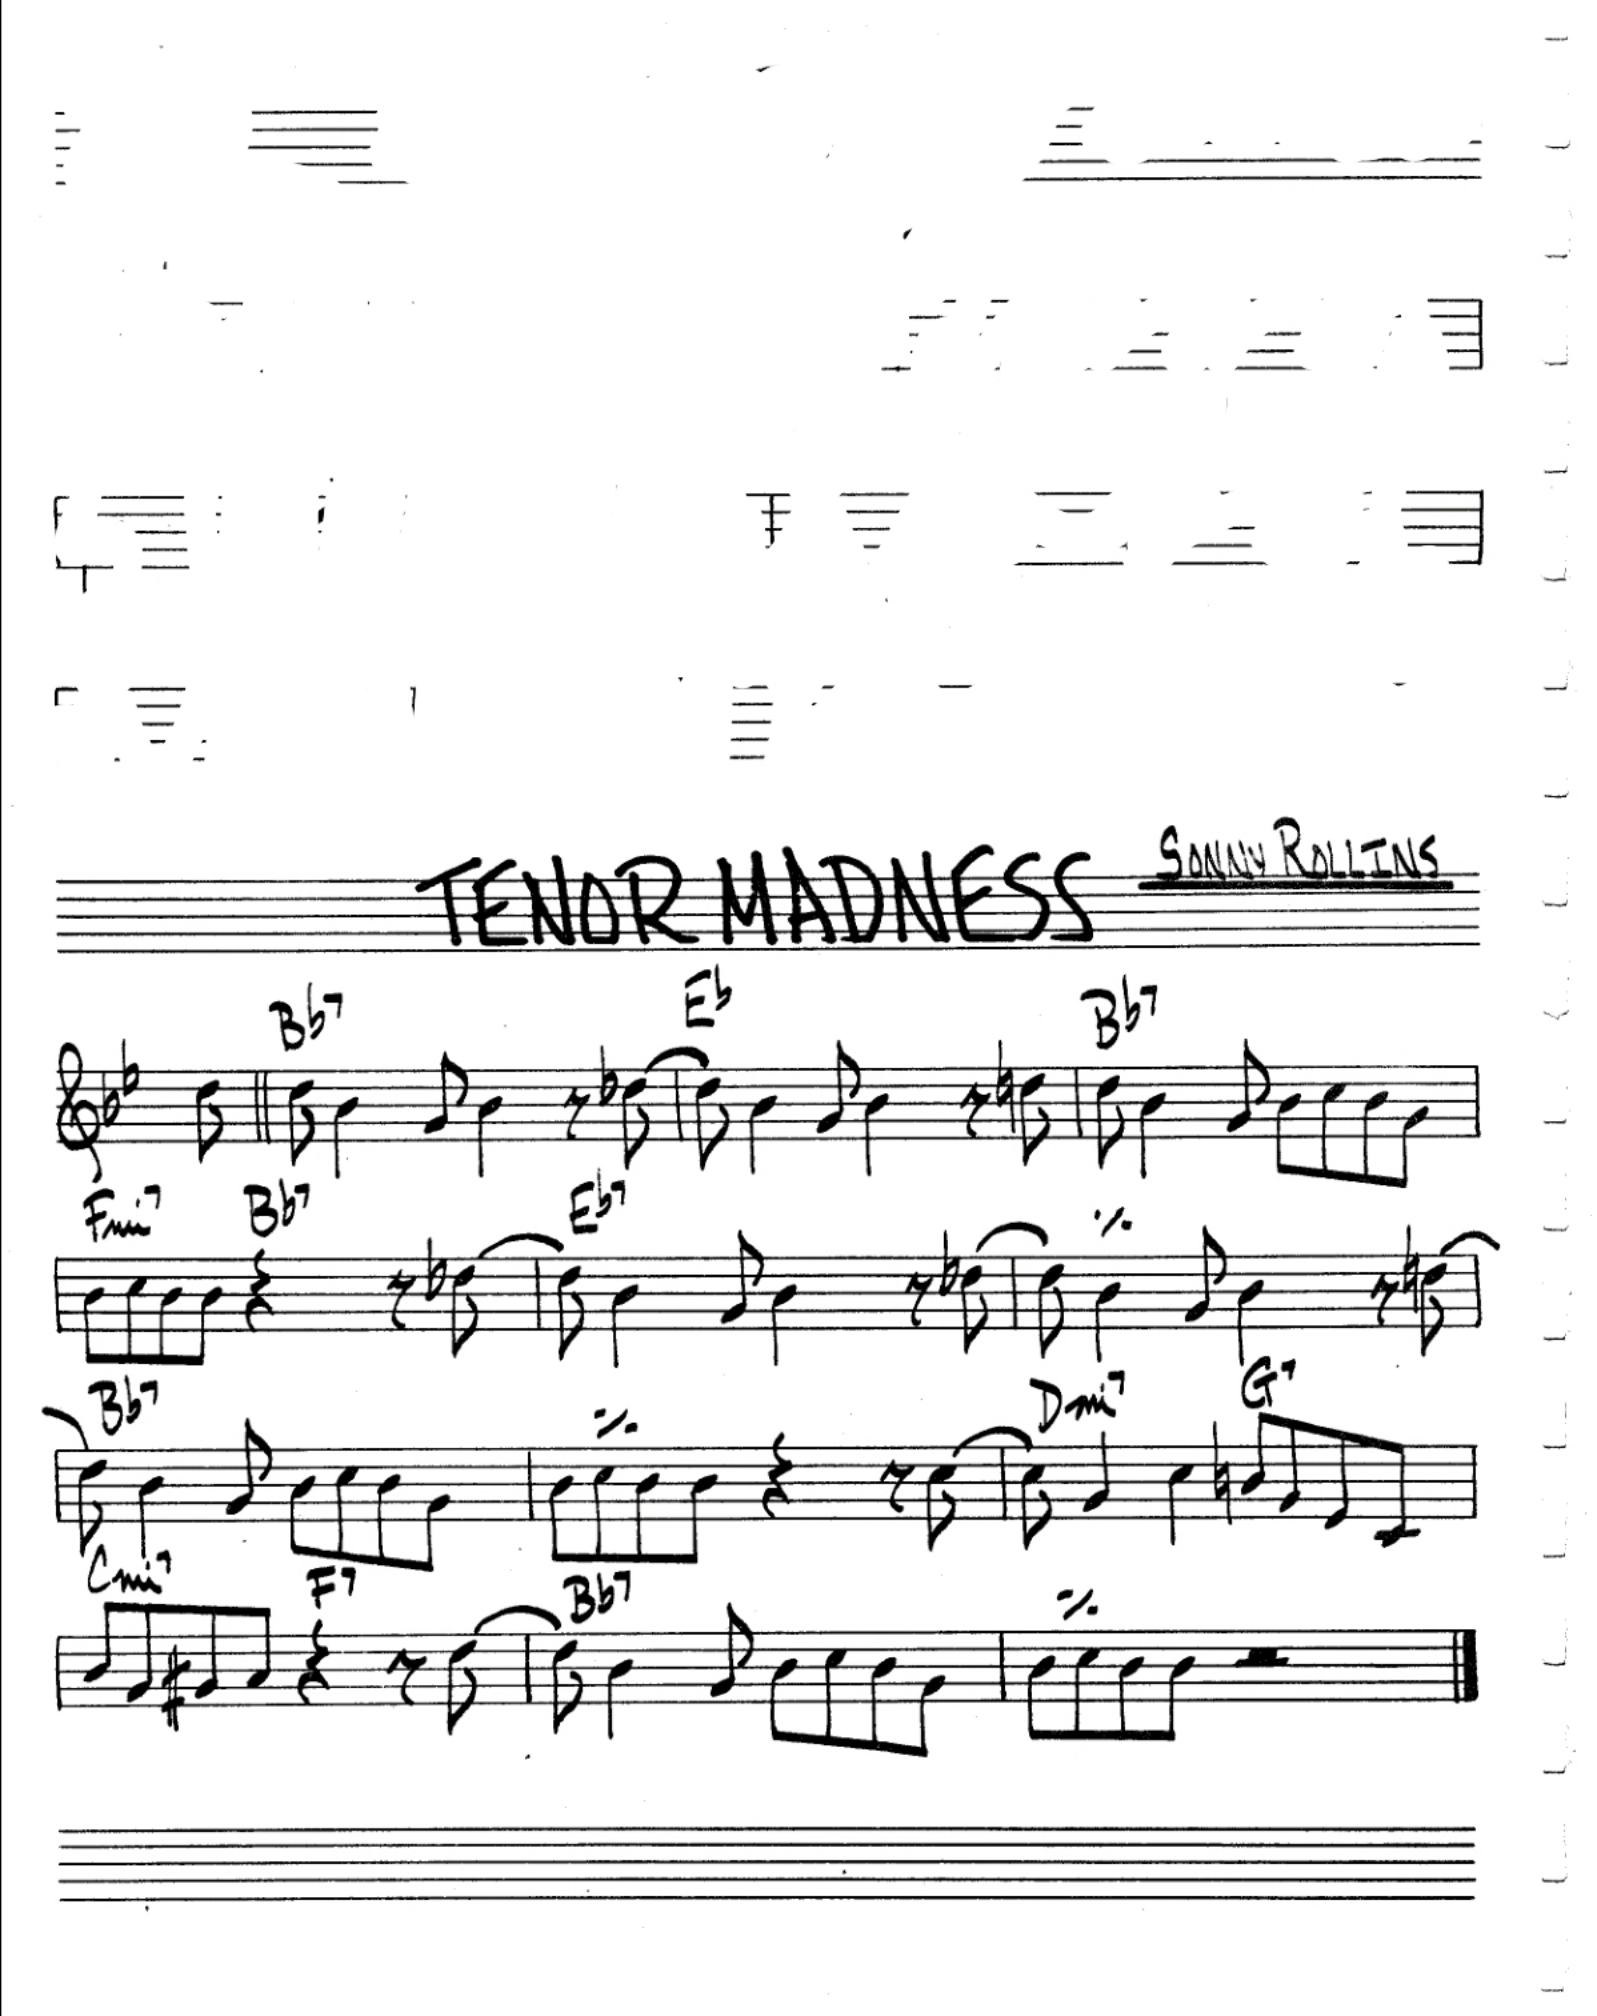 TENOR MADNESS
SONNY ROLLINS
Bb7 Eb Bb7
Fmi7 Bb7 Eb7 ٪
Bb7 ٪ Dmi7 G7
Cmi7 F7 Bb7 ٪